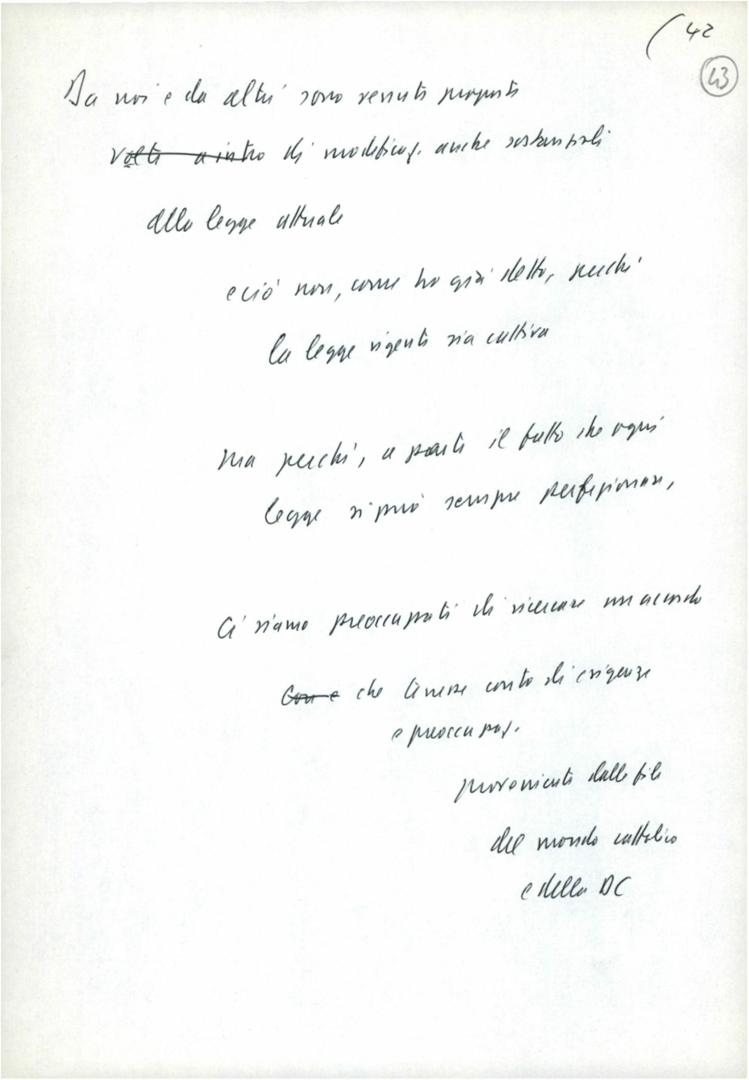 (42
43
Da noi e da altri sono venute proposte
volte a intro di modificaz. anche sostanziali
alla legge attuale
e ciò non, come ho già detto, perché
la legge vigente sia cattiva
ma perché, a parte il fatto che ogni
legge si può sempre perfezionare,
Ci siamo preoccupati di ricercare un accordo
Con e che tenesse conto di esigenze
e preoccupaz.
provenienti dalle file
del mondo cattolico
e della DC